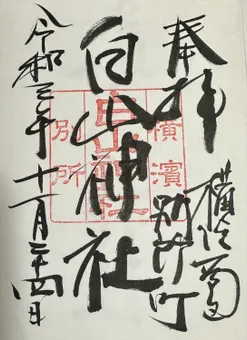 奉拝
横浜市南区
別所町
白山神社
令和三年十一月二十四日
横濱
白山神社
別所